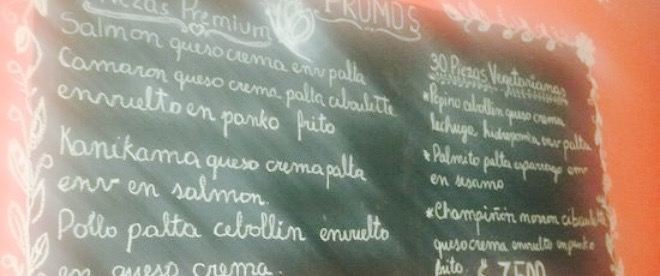 Piezas Premium
Salmon queso crema env palta
Camaron queso crema palta ciboulette
envuelto en panko frito
Kanikama queso crema palta
env en salmon.
Pollo palta cebollin envuelto
en queso crema.
PROMOS
30 Piezas Vegetarianas
*Pepino cebollin queso crema
lechuga hidroponica env palta
*Palmito palta esparrago env
en sesamo
*Champiñon morron ciboulette
queso crema envuelto en panko
frito. $ 7500